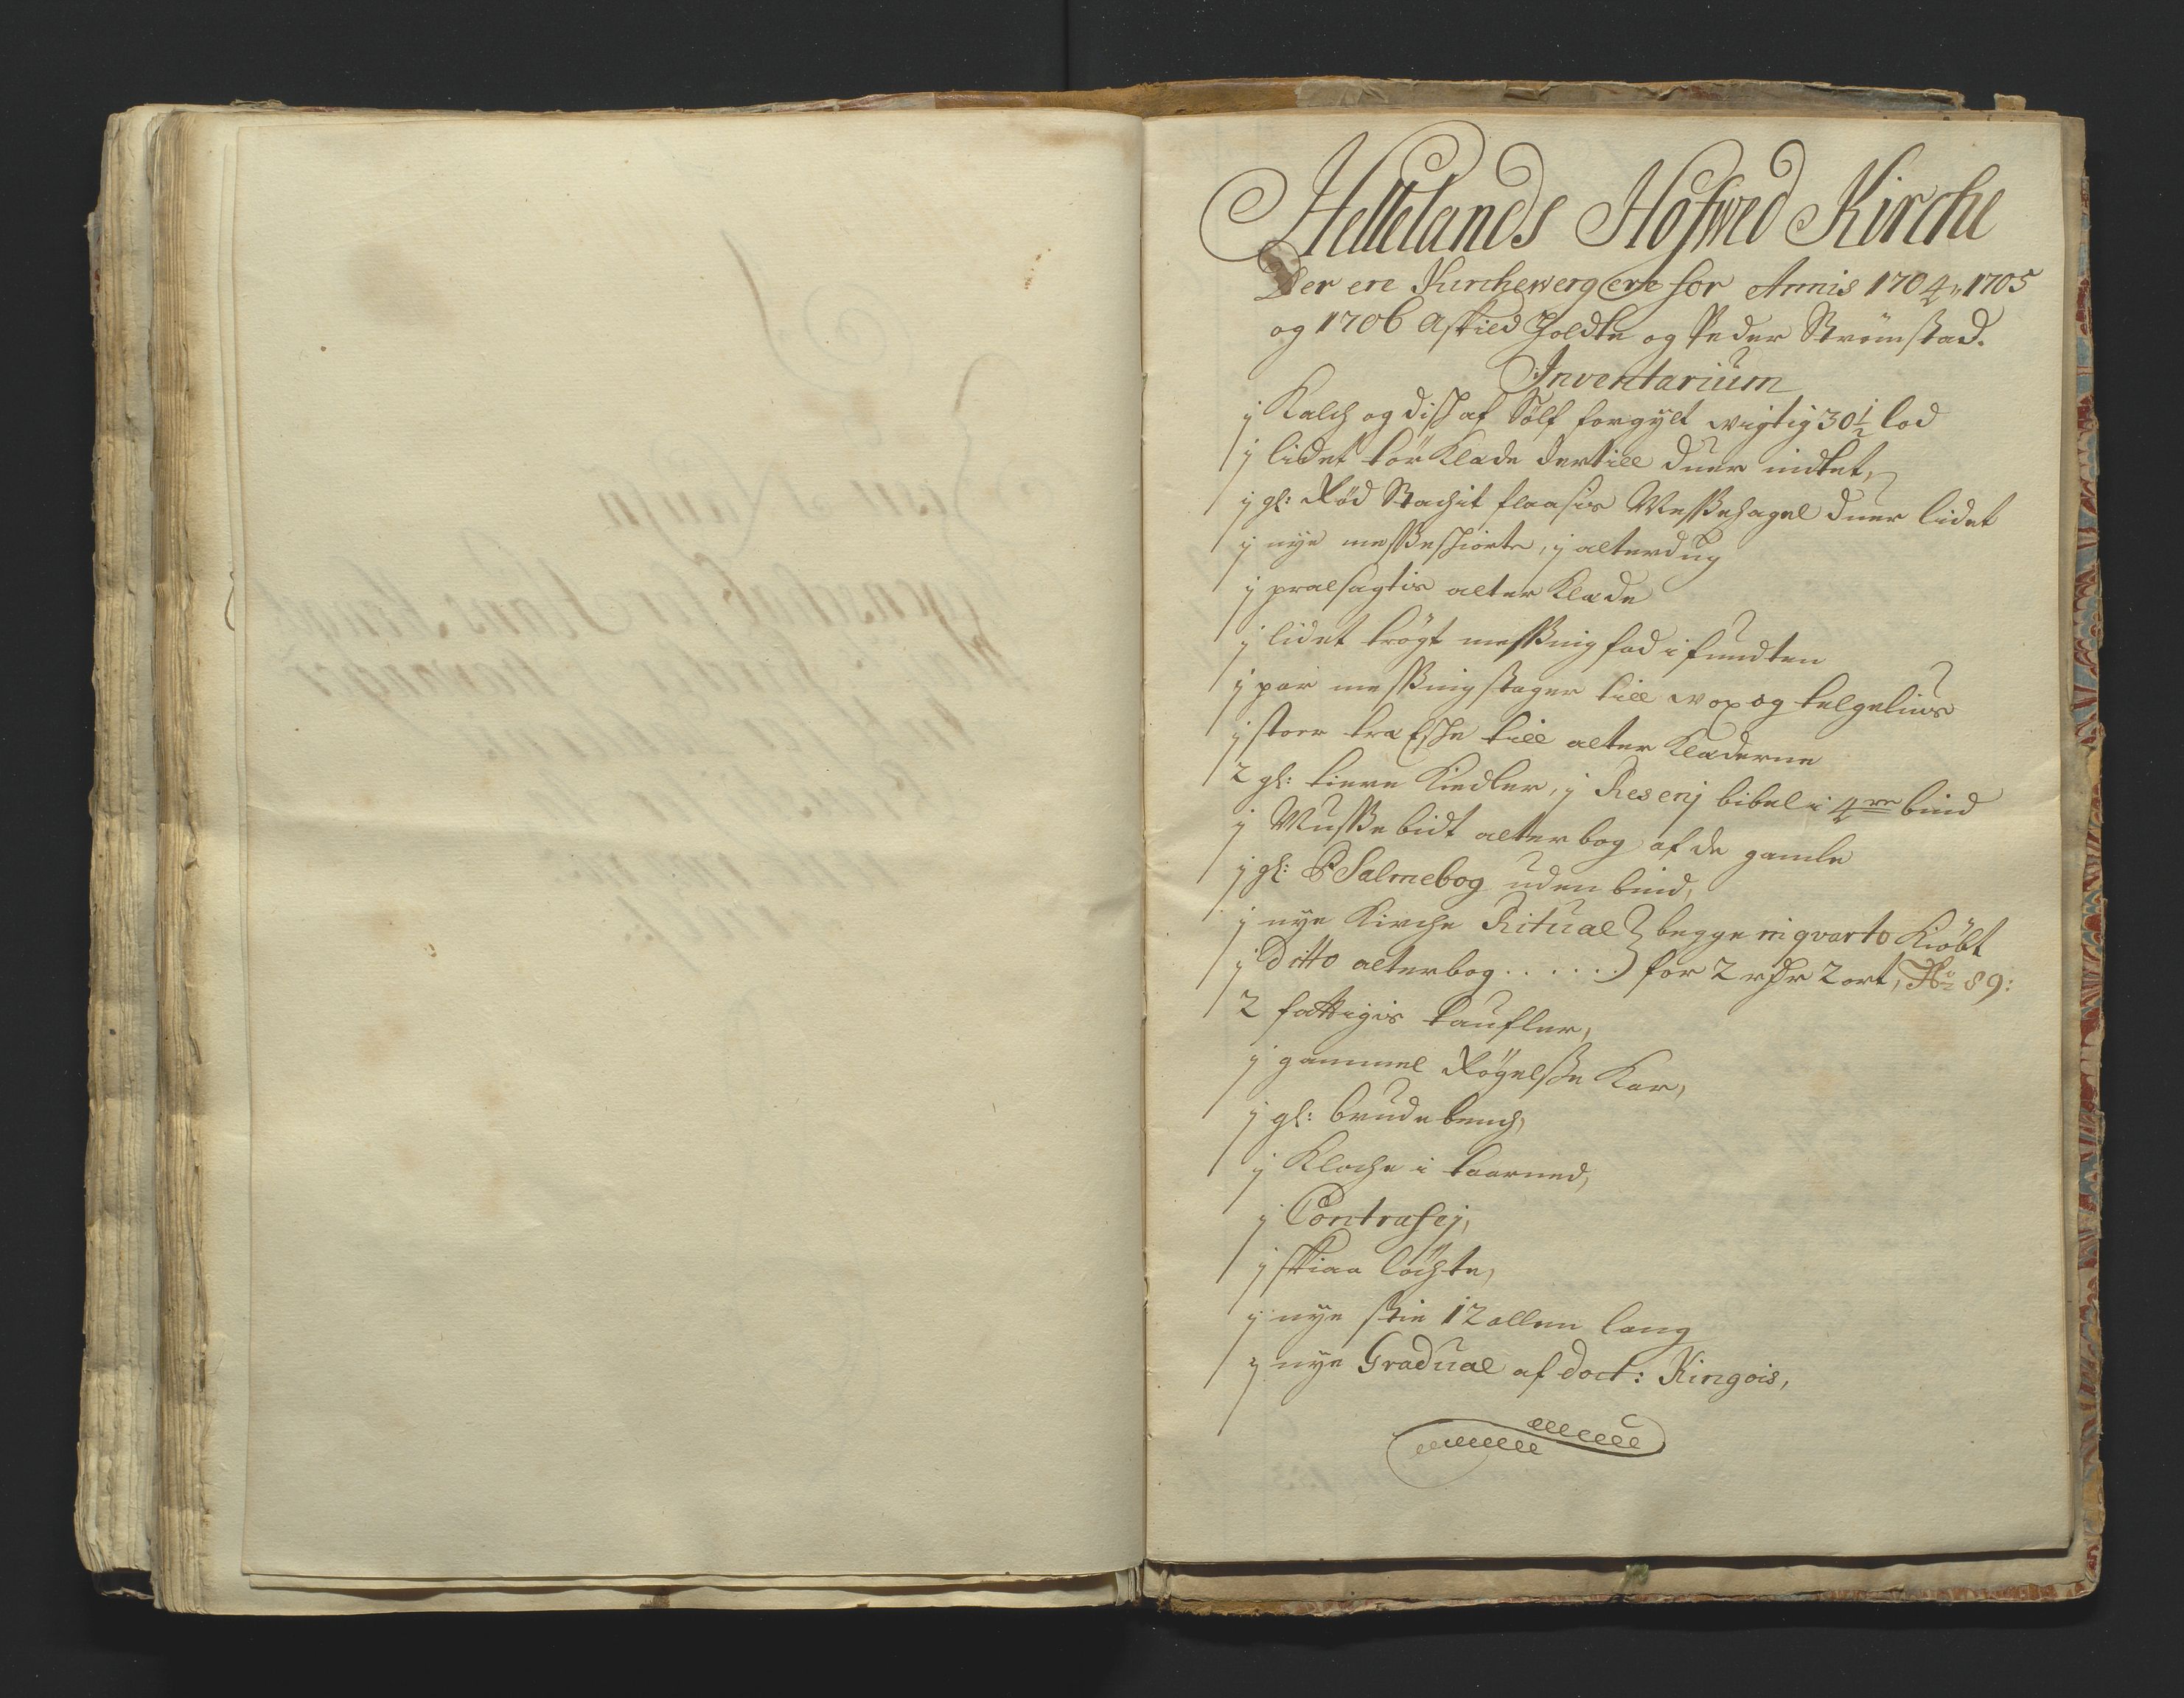 Hellelands Hofwed Kirche
Der ere Kirchewergere for Annis 1704, 1705
og 1706 Askild Holdte og Peder Strömstad.
Inventarium
j Kalch og disk af Sölf forgylt wigtig 30½ lod
j lidet tör Klæde dertill duer indtet,
j gl: Röd Stachit flaasis Messehagel duer lidet
j nye messeskiorte, j alterdug
j alter Klæde
j lidet messing fad i fundten
j par messing stager till wox og telgelius
j stoer træ Eske till alter Klæderne
2 gl: tiere Kiedler, j Resenj bibel i 4re bind
j Mussebidt alterbog af de gamle
j gl: PSalmebog uden bind,
j nye Kirche Ritual } begge in qvarto Kiöbt
j Ditto alterbog . . . . . . } for 2 rdr 2 ort, Ao 89:
2 fattigis taufler,
j gammel Rögelsse Kar,
j gl: brudebench,
j Kloche i taarned,
j Contrafej,
j skiaa löchte,
j nye stie 12 allen lang
j nye Gradual af doct: Kingois,